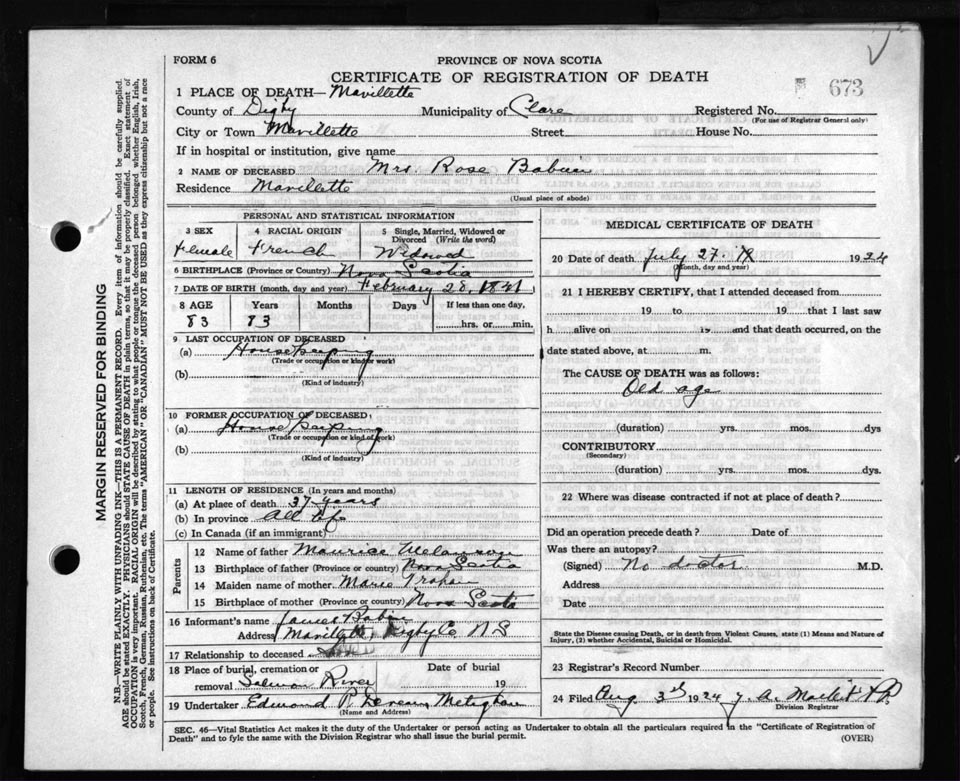 FORM 6
PROVINCE OF NOVA SCOTIA
CERTIFICATE OF REGISTRATION OF DEATH
673
1 PLACE OF DEATH—Mavillette
County of Digby Municipality of Clare Registered No.
(For use of Registrar General only)
City or Town Mavillette Street House No.
If in hospital or institution, give name
2 NAME OF DECEASED Mrs. Rose Babin
Residence Mavillette
(Usual place of abode)
PERSONAL AND STATISTICAL INFORMATION
3 SEX 4 RACIAL ORIGIN 5 Single, Married, Widowed or Divorced (Write the word)
Female French Widowed
6 BIRTHPLACE (Province or Country) Nova Scotia
7 DATE OF BIRTH (month, day and year) February 28. 1841
8 AGE Years Months Days If less than one day,
83 83 hrs. or min.
9 LAST OCCUPATION OF DECEASED
(a) Housekeeping
(Trade or occupation or kind of work)
(b)
(Kind of industry)
10 FORMER OCCUPATION OF DECEASED
(a) Housekeeping
(Trade or occupation or kind of work)
(b)
(Kind of industry)
11 LENGTH OF RESIDENCE (In years and months)
(a) At place of death 37 years
(b) In province All life
(c) In Canada (if an immigrant)
Parents
12 Name of father Maurice Melanson
13 Birthplace of father (Province or country) Nova Scotia
14 Maiden name of mother Marie Trahan
15 Birthplace of mother (Province or country) Nova Scotia
16 Informant's name James Babin
Address Mavillette, Digby Co N S
17 Relationship to deceased
18 Place of burial, cremation or Date of burial
removal Salmon River 19
19 Undertaker Edmund P. Deveau Meteghan
(Name and Address)
MEDICAL CERTIFICATE OF DEATH
20 Date of death July 27. 1924
(Month, day and year)
21 I HEREBY CERTIFY, that I attended deceased from
19 to 19 that I last saw
h alive on 19 and that death occurred, on the
date stated above, at m.
The CAUSE OF DEATH was as follows:
Old age
(duration) yrs. mos. dys
CONTRIBUTORY
(Secondary)
(duration) yrs. mos. ds.
22 Where was disease contracted if not at place of death?
Did an operation precede death? Date of
Was there an autopsy?
(Signed) No doctor M.D.
Address
Date
State the Disease causing Death, or in death from Violent Causes, state (1) Means and Nature of Injury, (2) whether Accidental, Suicidal or Homicidal.
23 Registrar's Record Number
24 Filed Aug 3rd 1924
Division Registrar
SEC. 46—Vital Statistics Act makes it the duty of the Undertaker or person acting as Undertaker to obtain all the particulars required in the "Certificate of Registration of
Death" and to fyle the same with the Division Registrar who shall issue the burial permit. (OVER)
MARGIN RESERVED FOR BINDING
N.B.—WRITE PLAINLY WITH UNFADING INK—THIS IS A PERMANENT RECORD. Every item of information should be carefully supplied.
AGE should be stated EXACTLY. PHYSICIANS should STATE CAUSE OF DEATH in plain terms, so that it may be properly classified. Exact statement of
OCCUPATION is very important. RACIAL ORIGIN will be described by stating to what people or tongue the deceased person belonged whether English, Irish,
Scotch, French, German, Russian, Ruthenian, etc. The terms "AMERICAN" or "CANADIAN" MUST NOT BE USED as they express citizenship but not a race
or people. See instructions on back of Certificate.